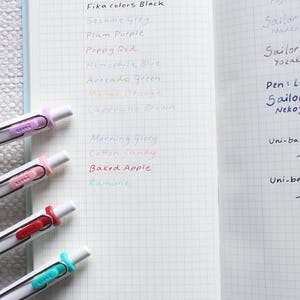 Fika colors Black
Sesame Grey
Plum Purple
Poppy Red
Nemophila Blue
Avocado Green
Cappuccino Brown
Morning Glory
Cotton Candy
Baked Apple
Ramune
Sailor
Sailor
Yozak
Pen: L
Sailo
Neko
Uni-ba
Uni-ba